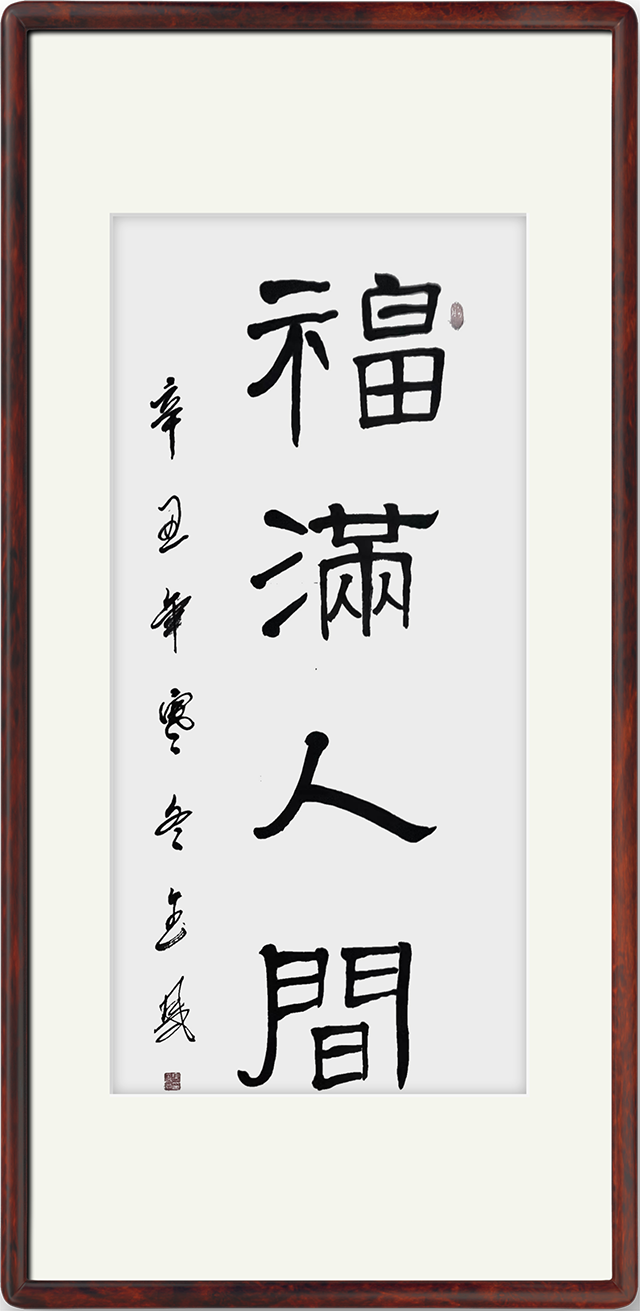 福滿人間
辛丑年寒冬金